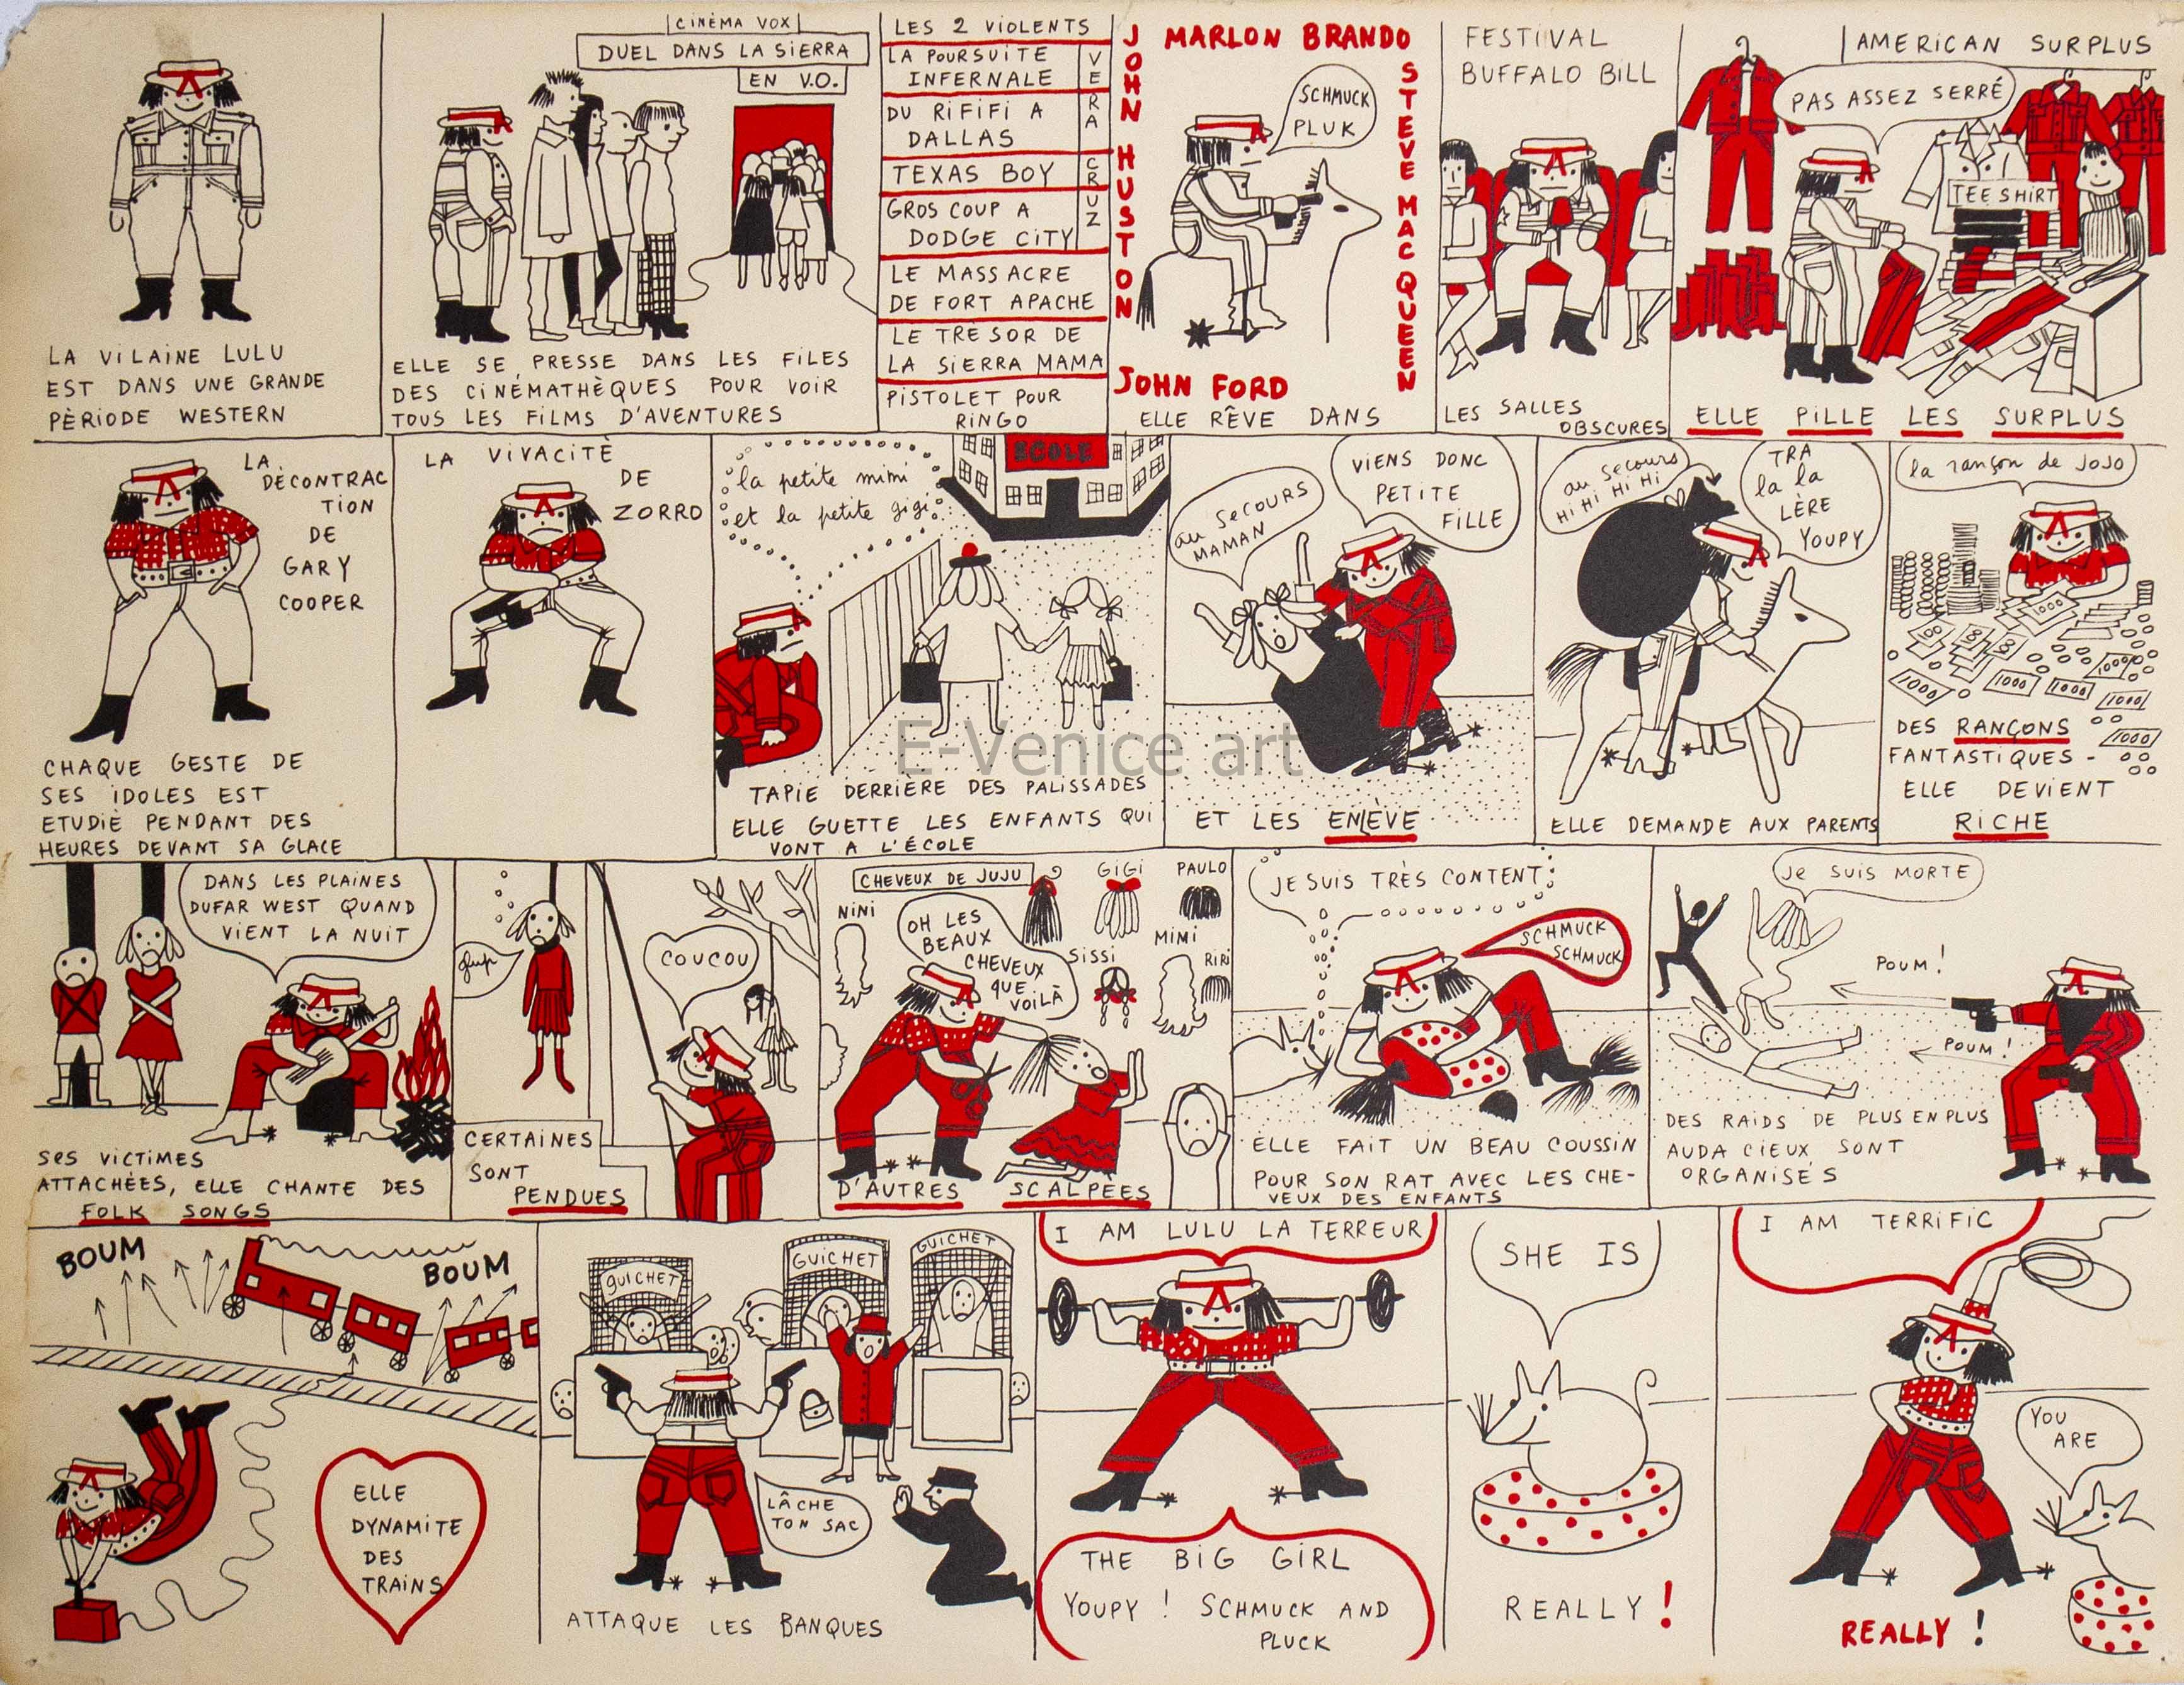 LA VILAINE LULU
EST DANS UNE GRANDE
PÈRIODE WESTERN
CINÈMA VOX
DUEL DANS LA SIERRA
EN V.O.
ELLE SE PRESSE DANS LES FILES
DES CINÉMATHÈQUES POUR VOIR
TOUS LES FILMS D'AVENTURES
LES 2 VIOLENTS
LA POURSUITE
INFERNALE
DU RIFIFI A
DALLAS
TEXAS BOY
GROS COUP A
DODGE CITY
VERA CRUZ
LE MASSACRE
DE FORT APACHE
LE TRESOR DE
LA SIERRA MAMA
PISTOLET POUR
RINGO
JOHN HUSTON
MARLON BRANDO
STEVE MAC QUEEN
SCHMUCK
PLUK
JOHN FORD
ELLE RÊVE DANS
FESTIVAL
BUFFALO BILL
LES SALLES
OBSCURES
AMERICAN SURPLUS
PAS ASSEZ SERRÉ
TEE SHIRT
ELLE PILLE LES SURPLUS
LA
DÈCONTRAC
TION
DE
GARY
COOPER
CHAQUE GESTE DE
SES IDOLES EST
ETUDIÈ PENDANT DES
HEURES DEVANT SA GLACE
LA VIVACITÈ
DE
ZORRO
la petite mimi
et la petite gigi
ECOLE
TAPIE DERRIÈRE DES PALISSADES
ELLE GUETTE LES ENFANTS QUI
VONT A L'ÉCOLE
au SECOURS
MAMAN
VIENS DONC
PETITE
FILLE
ET LES ENLÈVE
au secours
Hi Hi Hi Hi
TRA
la la
LÈRE
YOUPY
ELLE DEMANDE AUX PARENTS
la rançon de JOJO
100
100
1000
1000
1000
1000
1000
1000
1000
DES RANÇONS
FANTASTIQUES -
ELLE DEVIENT
RICHE
DANS LES PLAINES
DUFAR WEST QUAND
VIENT LA NUIT
SES VICTIMES
ATTACHÈES, ELLE CHANTE DES
FOLK SONGS
glup
CERTAINES
SONT
PENDUES
COUCOU
CHEVEUX DE JUJU
GIGI
PAULO
NINI
OH LES
BEAUX
CHEVEUX
QUE
VOILÀ
SISSI
MIMI
RIRI
D'AUTRES SCALPÈES
JE SUIS TRÈS CONTENT
SCHMUCK
SCHMUCK
ELLE FAIT UN BEAU COUSSIN
POUR SON RAT AVEC LES CHE-
VEUX DES ENFANTS
Je SUIS MORTE
POUM!
POUM!
DES RAIDS DE PLUS EN PLUS
AUDA CIEUX SONT
ORGANISÉS
BOUM
BOUM
ELLE
DYNAMITE
DES
TRAINS
GUICHET
GUICHET
GUICHET
LÂCHE
TON SAC
ATTAQUE LES BANQUES
I AM LULU LA TERREUR
THE BIG GIRL
YOUPY ! SCHMUCK AND
PLUCK
SHE IS
REALLY !
I AM TERRIFIC
YOU
ARE
REALLY !
E-Venice art